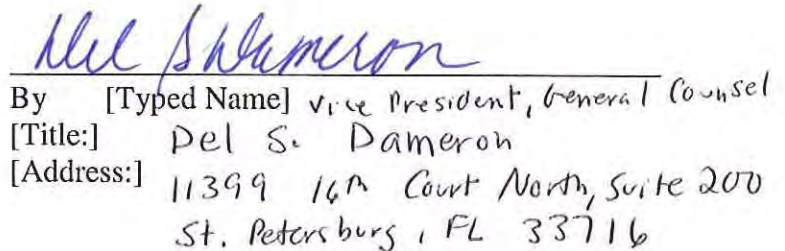 Del S Dameron
By [Typed Name] Vice President, General Counsel
[Title:] Del S. Dameron
[Address:] 11399 16th Court North, Suite 200
St. Petersburg, FL 33716